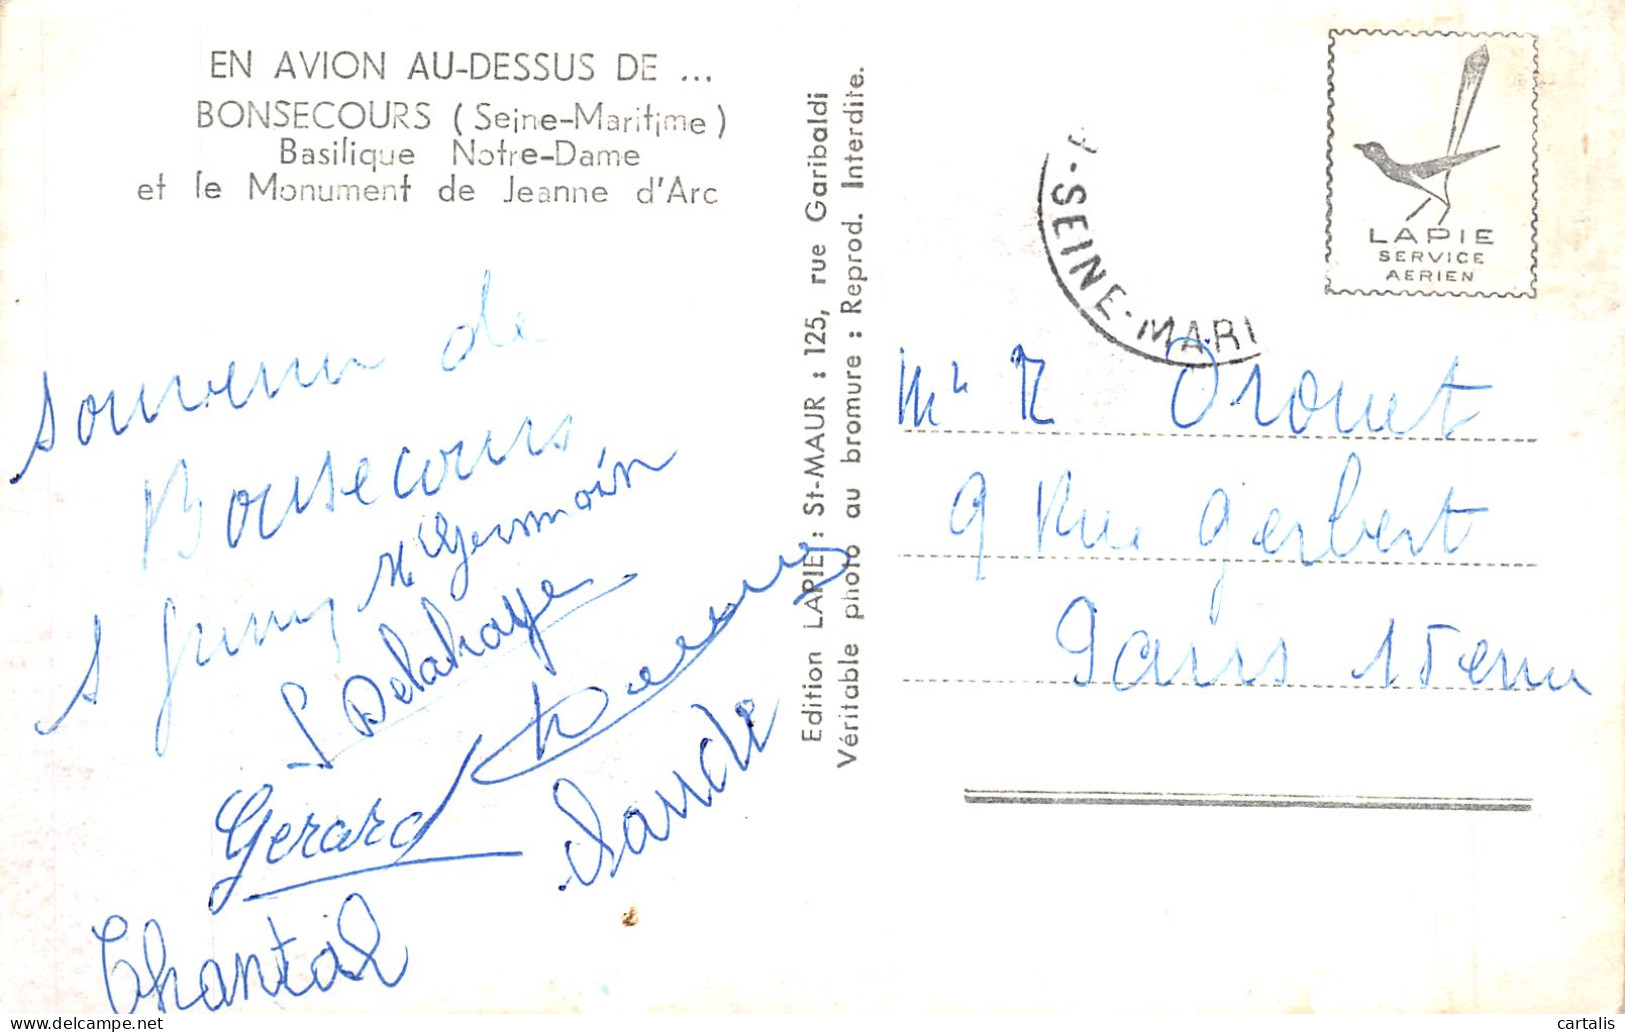 EN AVION AU-DESSUS DE ...
BONSECOURS (Seine-Maritime)
Basilique Notre-Dame
et le Monument de Jeanne d'Arc
Souvenir de
Bonsecours
M Germain
S Delahaye
Gerard
Claude
Chantal
Edition LAPIE : St-MAUR : 125, rue Garibaldi
Véritable photo au bromure : Reprod. Interdite.
SEINE-MARI
LAPIE
SERVICE
AERIEN
Mr R Drouet
9 Rue Gerbert
Paris 15eme
cartalis